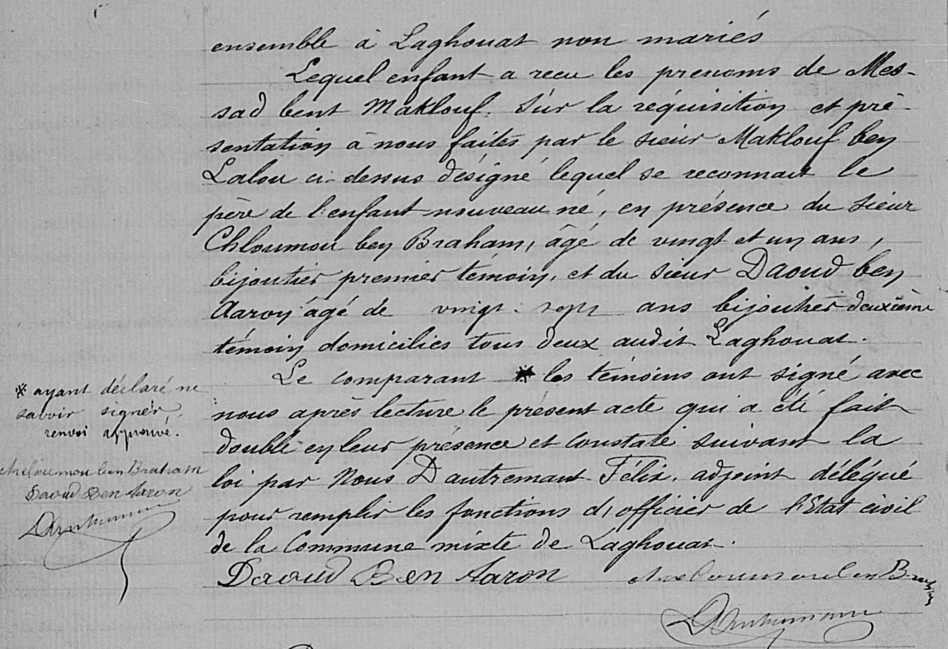 ensemble à Laghouat non mariés
Lequel enfant a reçu les prenoms de Mes-
sad bent Maklouf. Sur la réquisition et pré-
sentation à nous faites par le sieur Maklouf ben
Lalou ci dessus désigné lequel se reconnait le
père de l'enfant nouveau né, en présence du sieur
Chloumou ben Braham, âgé de vingt et un ans,
bijoutier premier témoin, et du sieur Daoud ben
Aaron âgé de vingt-sept ans bijoutier deuxième
témoin domiciliés tous deux audit Laghouat.
Le comparant * les témoins ont signé avec
nous après lecture le présent acte qui a été fait
double en leur présence et constaté suivant la
loi par Nous Dautremant Félix, adjoint délégué
pour remplir les fonctions d'officier de l'Etat civil
de la Commune mixte de Laghouat.
Daoud Ben Aaron
* ayant déclaré ne
savoir signer,
renvoi approuvé.
ben Braham
Daoud Ben Aaron